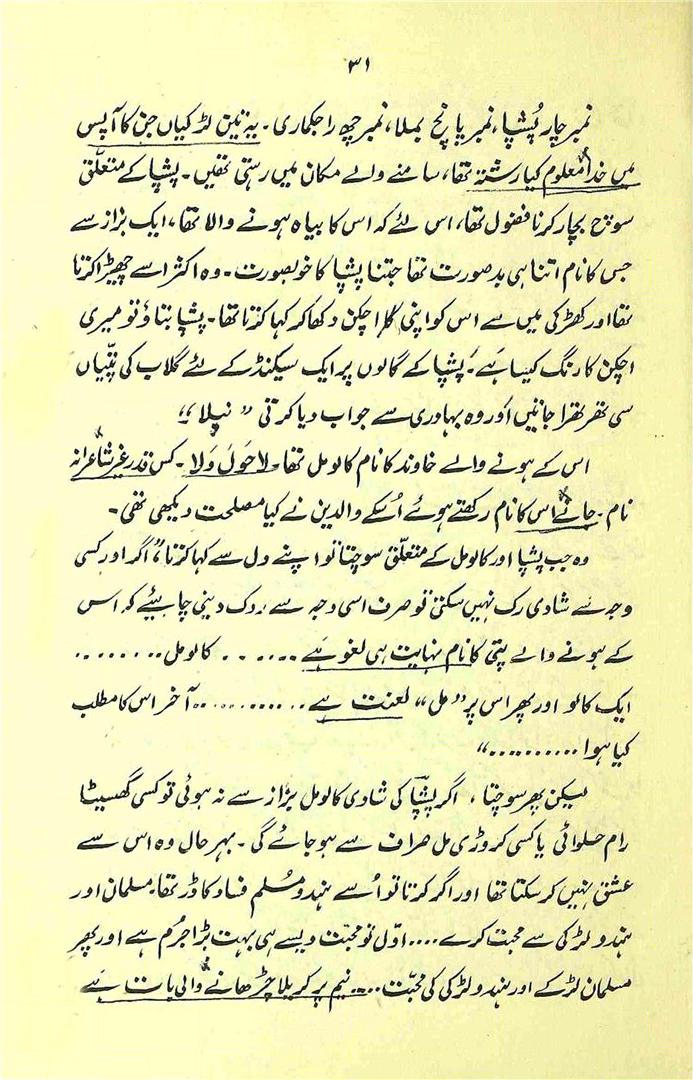 ۳۱
نمبر چار پُشپا، نمبر پانچ بملا، نمبر چھ راجکماری۔ یہ تین لڑکیاں جن کا آپس
میں خدا معلوم کیا رشتہ تھا، سامنے والے مکان میں رہتی تھیں۔ پشپا کے متعلّق
سوچ بچار کرنا فضول تھا، اس لئے کہ اس کا بیاہ ہونے والا تھا، ایک بزاز سے
جس کا نام اتنا ہی بدصورت تھا جتنا پشپا کا خوبصورت۔ وہ اکثر اسے چھیڑا کرتا
تھا اور کھڑکی میں سے اس کو اپنی کالی اچکن دکھا کر کہا کرتا تھا۔ پشپا بتاؤ تو میری
اچکن کا رنگ کیسا ہے۔ پُشپا کے گالوں پر ایک سیکنڈ کے لئے گلاب کی پتّیاں
سی تھرتھرا جاتیں اور وہ بہادری سے جواب دیا کرتی ”نیلا“
اس کے ہونے والے خاوند کا نام کالومل تھا۔ لاحَول وَلا۔ کس قدر غیر شاعرانہ
نام۔ جانے اس کا نام رکھتے ہوئے اُسکے والدین نے کیا مصلحت دیکھی تھی۔
وہ جب پشپا اور کالومل کے متعلّق سوچتا تو اپنے دل سے کہا کرتا، ”اگر اور کسی
وجہ سے شادی رک نہیں سکتی تو صرف اسی وجہ سے روک دینی چاہیئے کہ اس
کے ہونے والے پتی کا نام نہایت ہی لغو ہے ...... کالومل ........
ایک کالو اور پھر اس پر ”مل“ لعنت ہے ............ آخر اس کا مطلب
کیا ہوا ..........“
لیکن پھر سوچتا، اگر پشپا کی شادی کالومل بزاز سے نہ ہوئی تو کسی گھسیٹا
رام حلوائی یا کسی کروڑی مل صراف سے ہو جائے گی۔ بہر حال وہ اس سے
عشق نہیں کر سکتا تھا اور اگر کرتا تو اُسے ہندو مُسلم فساد کا ڈر تھا۔ مسلمان اور
ہندو لڑکی سے محبت کرے .... اوّل تو محبّت ویسے ہی بہت بڑا جرُم ہے اور پھر
مسلمان لڑکے اور ہندو لڑکی کی محبّت .... نیم پر کریلا چڑھانے والی بات ہے